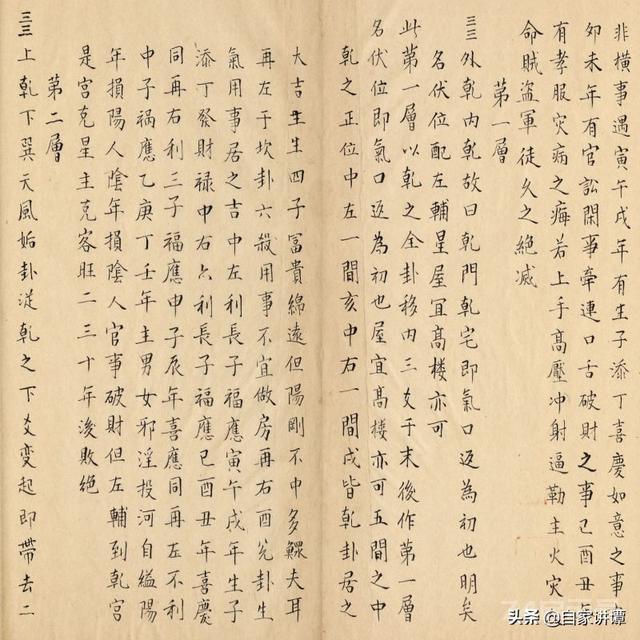 非橫事遇寅午戌年有生子添丁喜慶如意之事
卯未年有官訟閑事牽連口舌破財之事巳酉丑
有孝服灾病之痗若上手高壓冲射逼勒主火灾
命賊盜軍徒久之絶滅
第一層
三三外乾内乾故曰乾門乾宅即氣口返為初也明矣
名伏位配左輔星屋宜高楼亦可
此第一層以乾之全卦移内三爻于末後作第一層
名伏位即氣口返為初也屋宜高楼亦可五間之中
乾之正位中左一間亥中右一間戌皆乾卦居之
大吉生生四子冨貴綿遠但陽剛不中多鰥夫耳
再左于坎卦六殺用事不宜做房再右酉兊卦生
氣用事居之吉中左利長子福應寅午戌年生子
添丁發財禄中右六利長子福應巳酉丑年喜慶
同再右利三子福應申子辰年喜應同再左不利
中子禍應乙庚丁壬年主男女邪淫投河自縊陽
年損陽人陰年損陰人官事破財但左輔到乾宮
是宮克星主克客旺二三十年後敗絶
第二層
三三上乾下巽天風姤卦從乾之下爻变起即帶去二
头条@自家讲谭